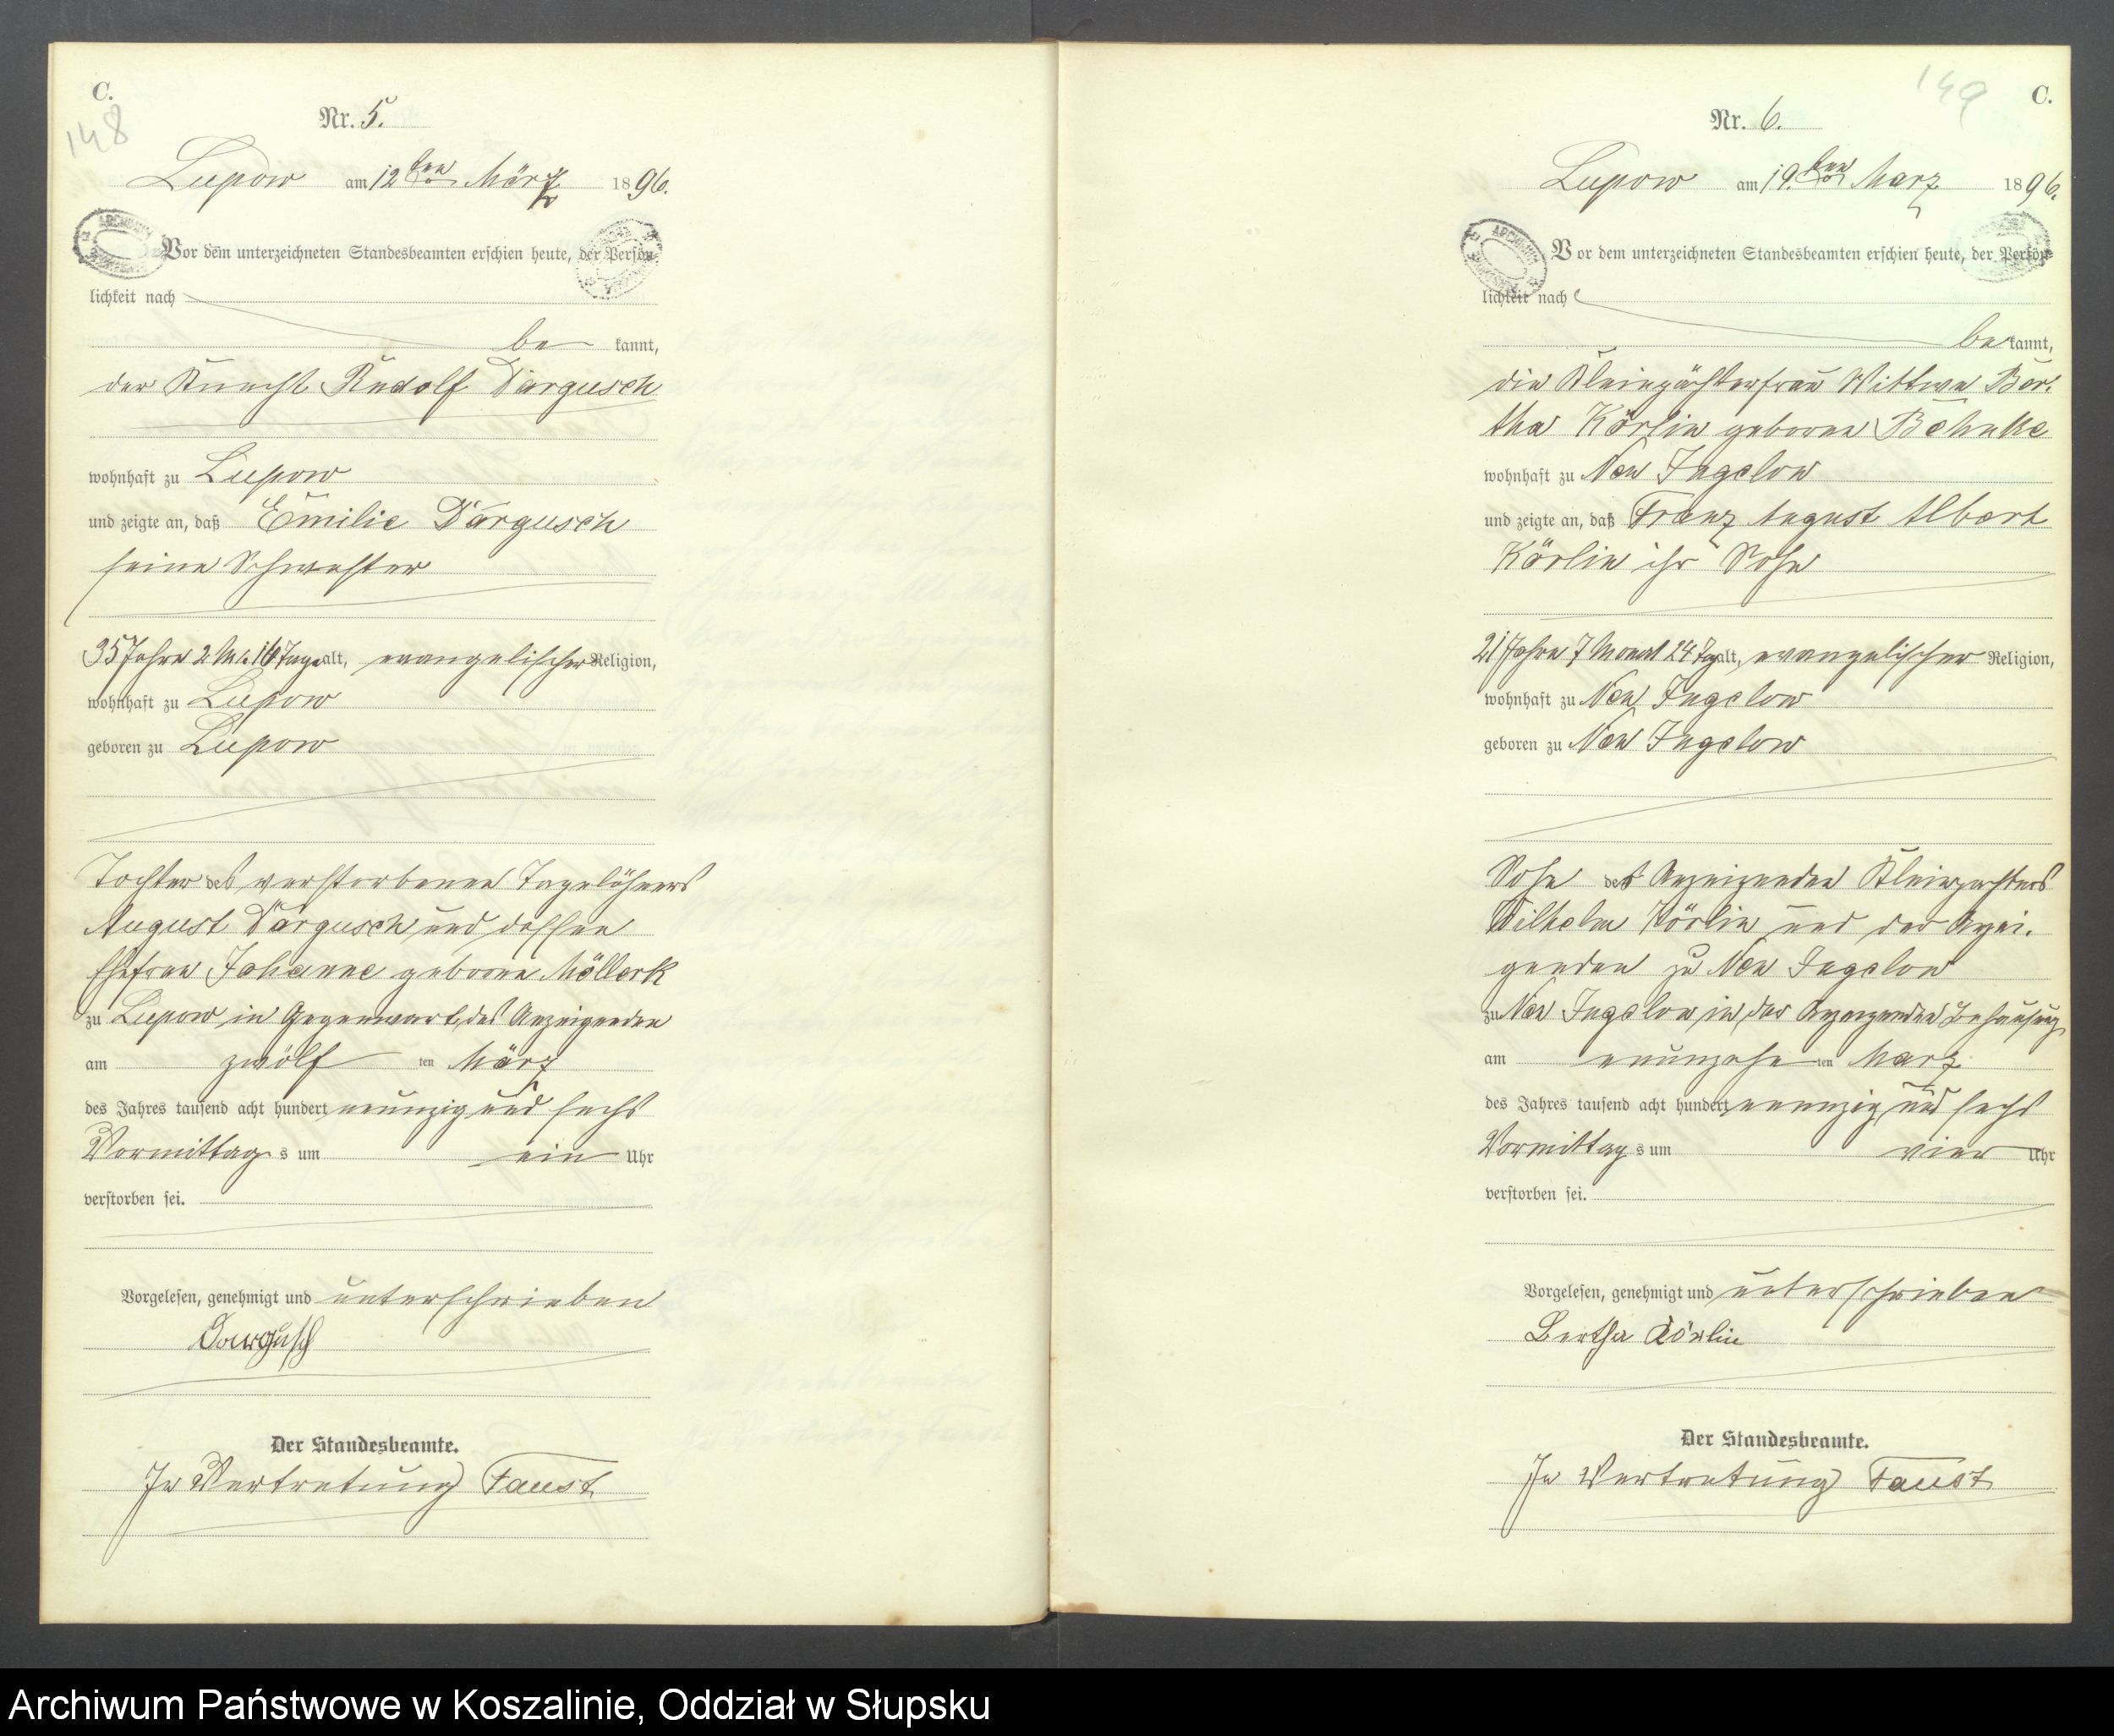 C.
148
Nr. 5.
Lupow am 12ten März 1896.
Vor dem unterzeichneten Standesbeamten erschien heute, der Persön-
lichkeit nach
be kannt,
der Knecht Rudolf Dargusch
wohnhaft zu Lupow
und zeigte an, daß Emilie Dargusch
seine Schwester
35 Jahre 2 M. 16 Tage alt, evangelischer Religion,
wohnhaft zu Lupow
geboren zu Lupow
Tochter des verstorbenen Tagelöhners
August Dargusch und dessen
Ehefrau Johanne geborne Möllerk
zu Lupow in Gegenwart des Anzeigenden
am zwölf ten März
des Jahres tausend acht hundert neunzig und sechs
Vormittag s um ein Uhr
verstorben sei.
Vorgelesen, genehmigt und unterschrieben
Dargusch
Der Standesbeamte.
In Vertretung Faust
149
C.
Nr. 6.
Lupow am 19. ten Marz 1896.
Vor dem unterzeichneten Standesbeamten erschien heute, der Persön-
lichkeit nach
be kannt,
die Kleinpächterfrau Wittwe Ber-
tha Körlin geborne Böhnke
wohnhaft zu Neu Jugelow
und zeigte an, daß Franz August Albert
Körlin ihr Sohn
21 Jahre 7 Monat 24 Tag alt, evangelischer Religion,
wohnhaft zu Neu Jugelow
geboren zu Neu Jugelow
Sohn des Anzeigenden Kleinpachters
Wilhelm Körlin und der Anzei-
genden zu Neu Jugelow
zu Neu Jugelow in der Anzeigenden Behausung
am neunzehn ten Marz
des Jahres tausend acht hundert neunzig und sechs
Vormittag s um vier Uhr
verstorben sei.
Vorgelesen, genehmigt und unterschrieben
Bertha Körlin
Der Standesbeamte.
In Vertretung Faust
Archiwum Państwowe w Koszalinie, Oddział w Słupsku